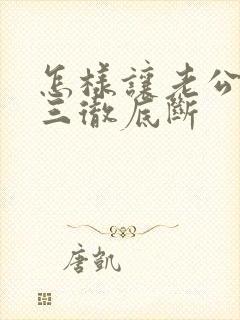 怎樣讓老公
三徹底斷
唐凱